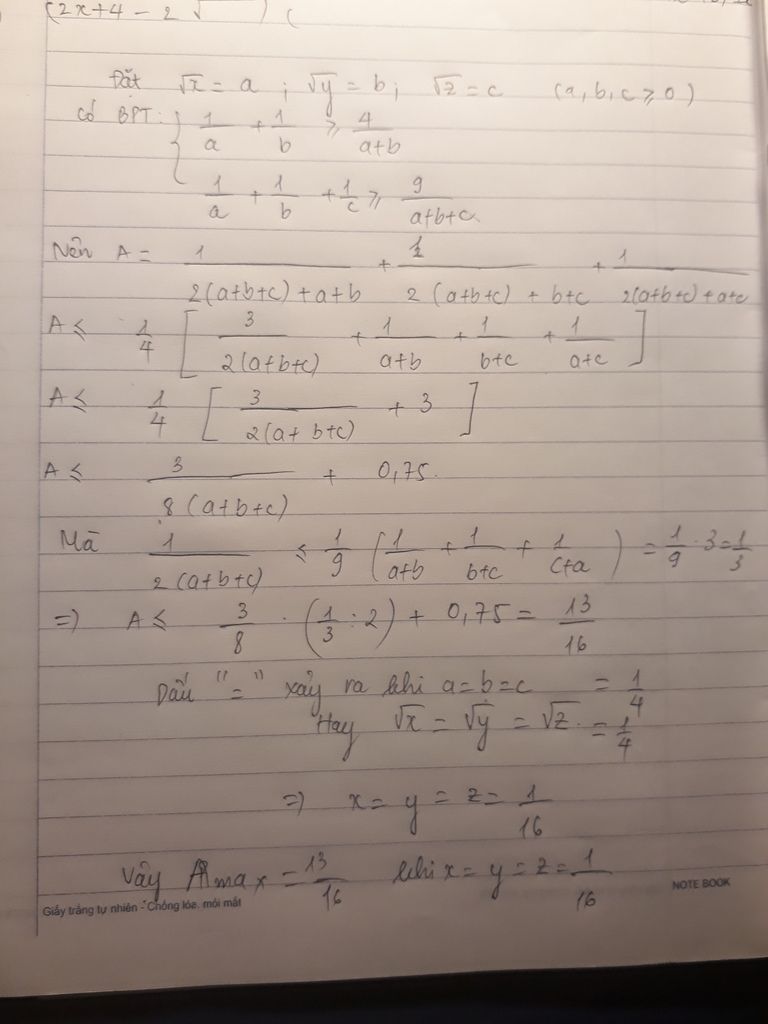 (2x+4 - 2√ ) (
Đặt √x = a ; √y = b ; √z = c (a, b, c ≥ 0)
Có BPT: { 1/a + 1/b ≥ 4/(a+b)
1/a + 1/b + 1/c ≥ 9/(a+b+c)
Nên A = 1/(2(a+b+c)+a+b) + 1/(2(a+b+c)+b+c) + 1/(2(a+b+c)+a+c)
A ≤ 1/4 [ 3/(2(a+b+c)) + 1/(a+b) + 1/(b+c) + 1/(a+c) ]
A ≤ 1/4 [ 3/(2(a+b+c)) + 3 ]
A ≤ 3/(8(a+b+c)) + 0,75.
Mà 1/(2(a+b+c)) ≤ 1/9 ( 1/(a+b) + 1/(b+c) + 1/(c+a) ) = 1/9 · 3 = 1/3
=) A ≤ 3/8 · (1/3 : 2) + 0,75 = 13/16
Dấu "=" xảy ra khi a = b = c = 1/4
Hay √x = √y = √z = 1/4
=) x = y = z = 1/16
Vậy Amax = 13/16 khi x = y = z = 1/16
Giấy trắng tự nhiên - Chống lóa, mỏi mắt
NOTE BOOK